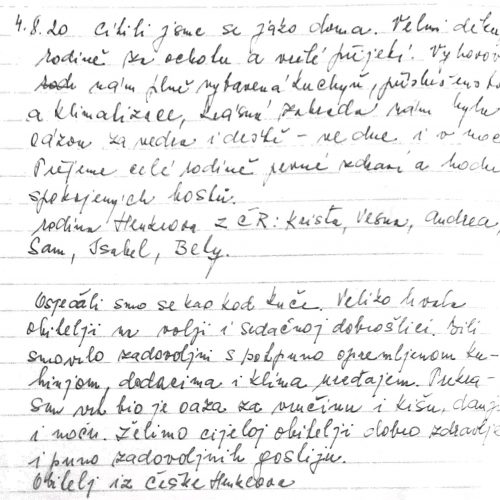 4.8.20 Cítili jsme se jako doma. Velmi děku
rodině za ochotu a vřelé přijetí. Vyhovo
nám plně vybavená kuchyň, příslušenst
a klimatizace, krásná zahrada nám byla
oázou za vedra i deště - ve dne i v noc
Přejeme celé rodině pevné zdraví a hodn
spokojených hostů.
rodina Henkeova z ČR: Krista, Vesna, Andrea,
Sam, Isabel, Bely.
Osjećali smo se kao kod kuće. Veliko hvala
obitelji na volji i srdačnoj dobrošlici. Bili
smo vrlo zadovoljni s potpuno opremljenom ku-
hinjom, dodacima i klima uređajem. Prekra-
san vrt bio je oaza za vrućinu i kišu, danju
i noću. Želimo cijeloj obitelji dobro zdravlje
i puno zadovoljnih gostiju.
Obitelj iz Češke Henkeova